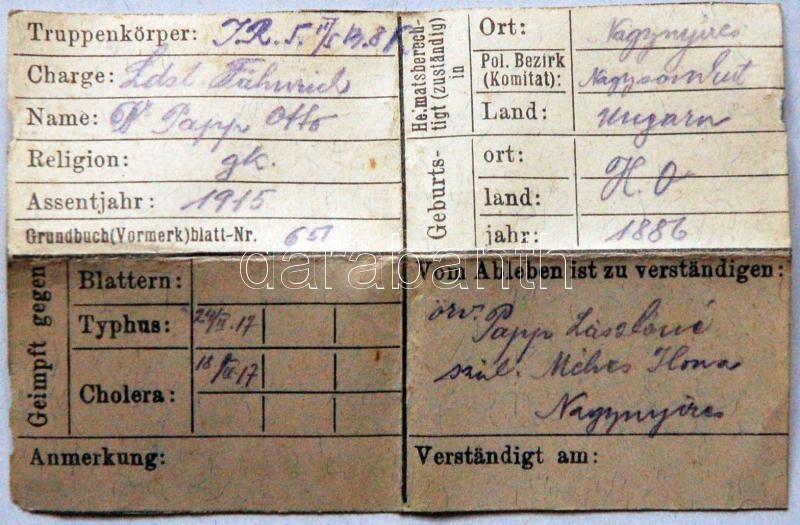 Truppenkörper: I.R. 5. III/5 B. 8 K
Charge: Ldst. Fähnrich
Name: Dr Papp Otto
Religion: gk.
Assentjahr: 1915
Grundbuch(Vormerk)blatt-Nr. 651
Heimatsberech-
tigt (zuständig)
in
Ort: Nagynyires
Pol. Bezirk
(Komitat): Nagysomkut
Land: Ungarn
Geburts-
ort: H. O
land:
jahr: 1886
Geimpft gegen
Blattern:
Typhus: 24/II.17
Cholera: 17
Anmerkung:
Vom Ableben ist zu verständigen:
özv. Papp Lászlóné
szül. Méhes Ilona
Nagynyires
Verständigt am:
darabanth